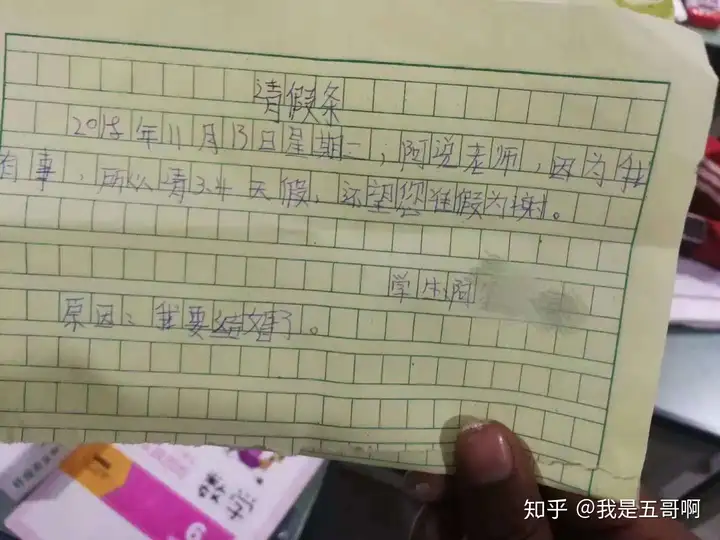 请假条
2018年11月13日星期二，阿说老师，因为我
有事，所以请3.4天假，还望您准假为谢。
学生阿
原因：我要结婚了。
知乎 @我是五哥啊